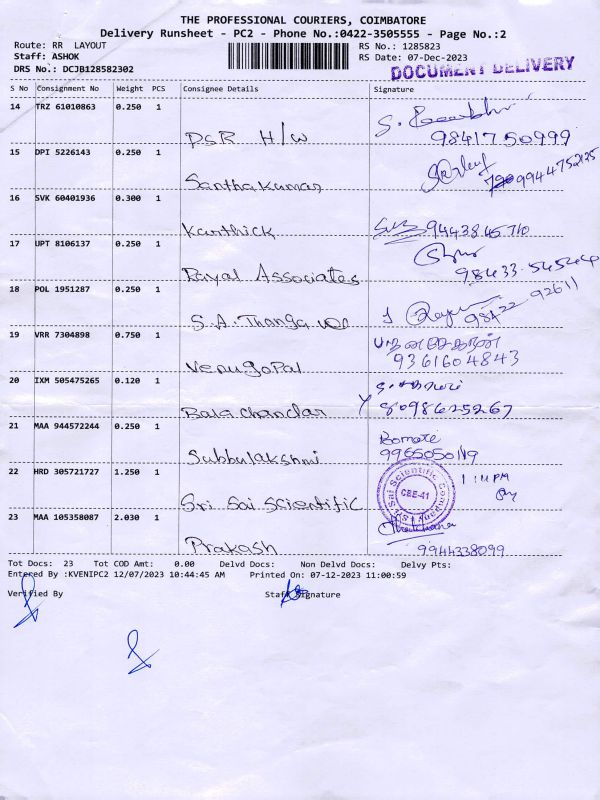 THE PROFESSIONAL COURIERS, COIMBATORE
Delivery Runsheet - PC2 - Phone No.:0422-3505555 - Page No.:2
Route: RR LAYOUT
RS No.: 1285823
Staff: ASHOK
RS Date: 07-Dec-2023
DRS No.: DCJB128582302
DOCUMENT DELIVERY
S No Consignment No Weight PCS Consignee Details Signature
14 TRZ 61010863 0.250 1
DSR H/W 9841750999
15 DPI 5226143 0.250 1
Santhakumar
16 SVK 60401936 0.300 1
Karthick
17 UPT 8106137 0.250 1
Royal Associates
18 POL 1951287 0.250 1
S.A. Thanga
19 VRR 7304898 0.750 1
Venugopal 9361604843
20 IXM 505475265 0.120 1
Bala chandar 8098625267
21 MAA 944572244 0.250 1
Subbulakshmi
22 HRD 305721727 1.250 1
Sri Sai Scientific
Sai Scientific Company
CBE-41
23 MAA 105358087 2.030 1
Prakash 9944338099
Tot Docs: 23 Tot COD Amt: 0.00 Delvd Docs: Non Delvd Docs: Delvy Pts:
Entered By :KVENIPC2 12/07/2023 10:44:45 AM Printed On: 07-12-2023 11:00:59
Verified By Staff Signature